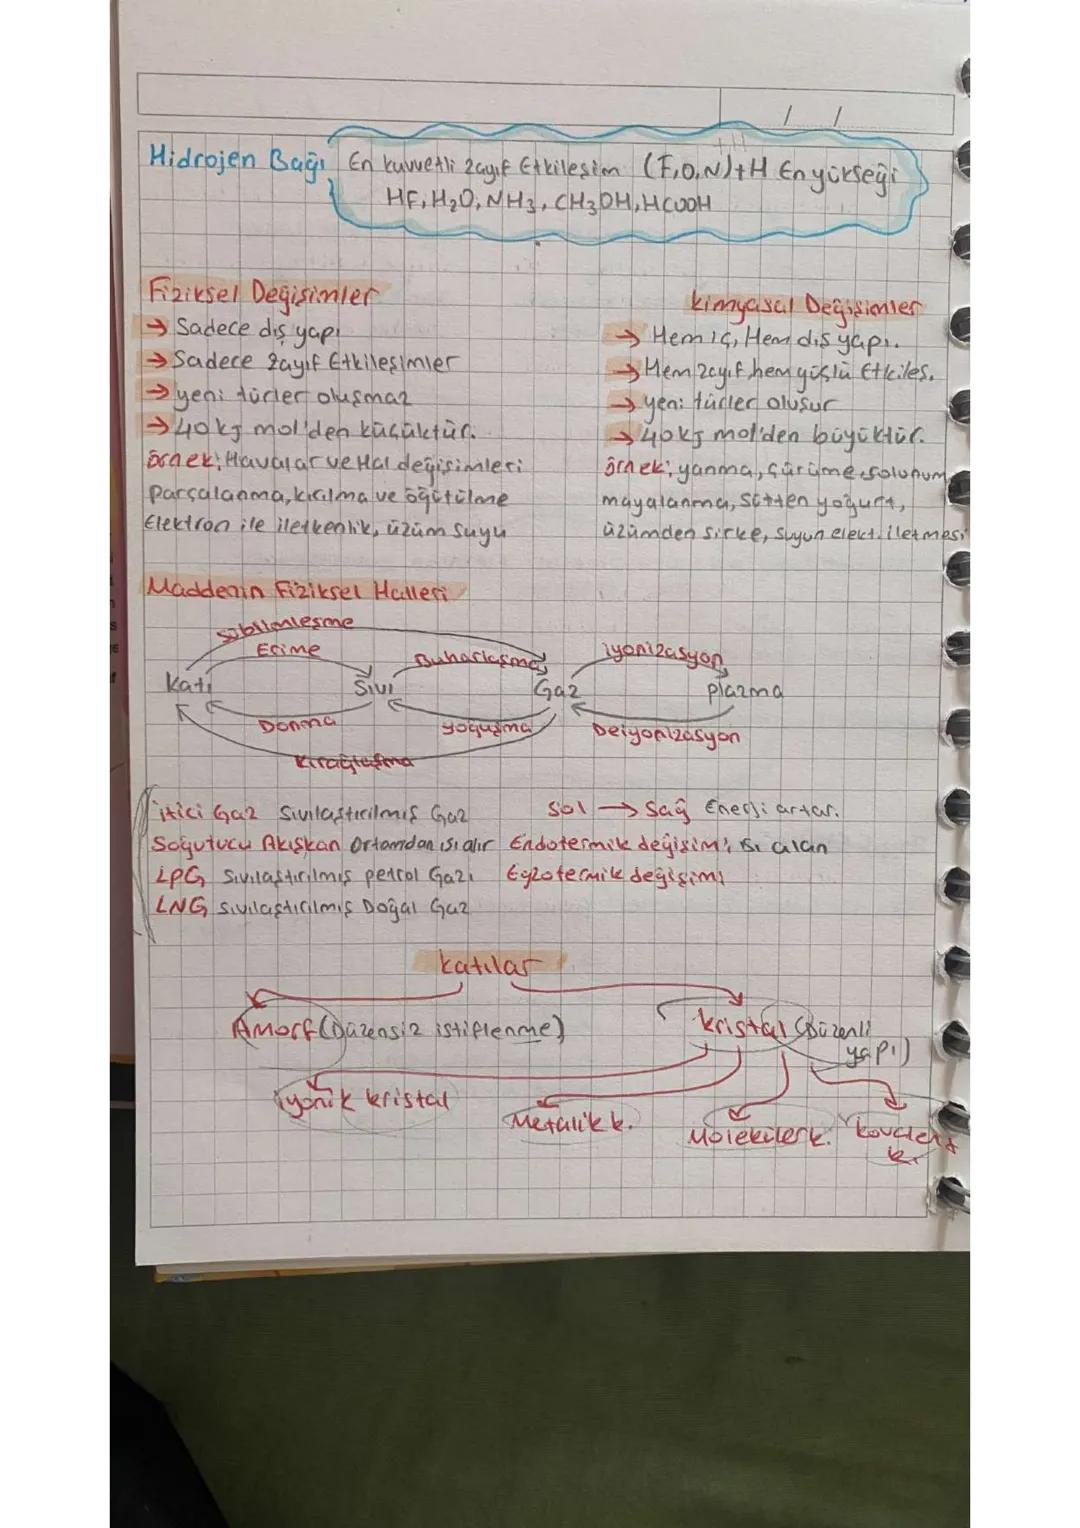 Hidrojen Bağı En kuvvetli zayıf Etkileşim (F,O,N)+H En yükseği
HF, H₂O, NH₃, CH₃OH, HCOOH
Fiziksel Değişimler
→ Sadece dış yapı
→ Sadece zayıf Etkileşimler
→ yeni türler oluşmaz
→ 40 kj mol'den küçüktür.
örnek; Havalar ve Hal değişimleri
parçalanma, kırılma ve öğütülme
Elektron ile iletkenlik, üzüm suyu
kimyasal Değişimler
→ Hem iç, Hem dış yapı.
→ Hem zayıf, hem güçlü Etkileş.
→ yeni türler oluşur
→ 40 kj mol'den büyüktür.
örnek; yanma, çürüme, solunum,
mayalanma, sütten yoğurt,
üzümden sirke, suyun elekt. iletmesi
Maddenin Fiziksel Halleri
Süblimleşme
Erime Buharlaşma iyonizasyon
Katı Sıvı Gaz plazma
Donma yoğuşma Deiyonizasyon
Kırağılaşma
itici Gaz Sıvılaştırılmış Gaz
Soğutucu Akışkan Ortamdan ısı alır
LPG Sıvılaştırılmış petrol Gazı
LNG Sıvılaştırılmış Doğal Gaz
Sol → Sağ Enerji artar.
Endotermik değişim; Isı alan
Egzotermik değişim;
katılar
Amorf (Düzensiz istiflenme) kristal (Düzenli
yapı)
iyonik kristal Metalik k. Moleküler k. kovalent
k.